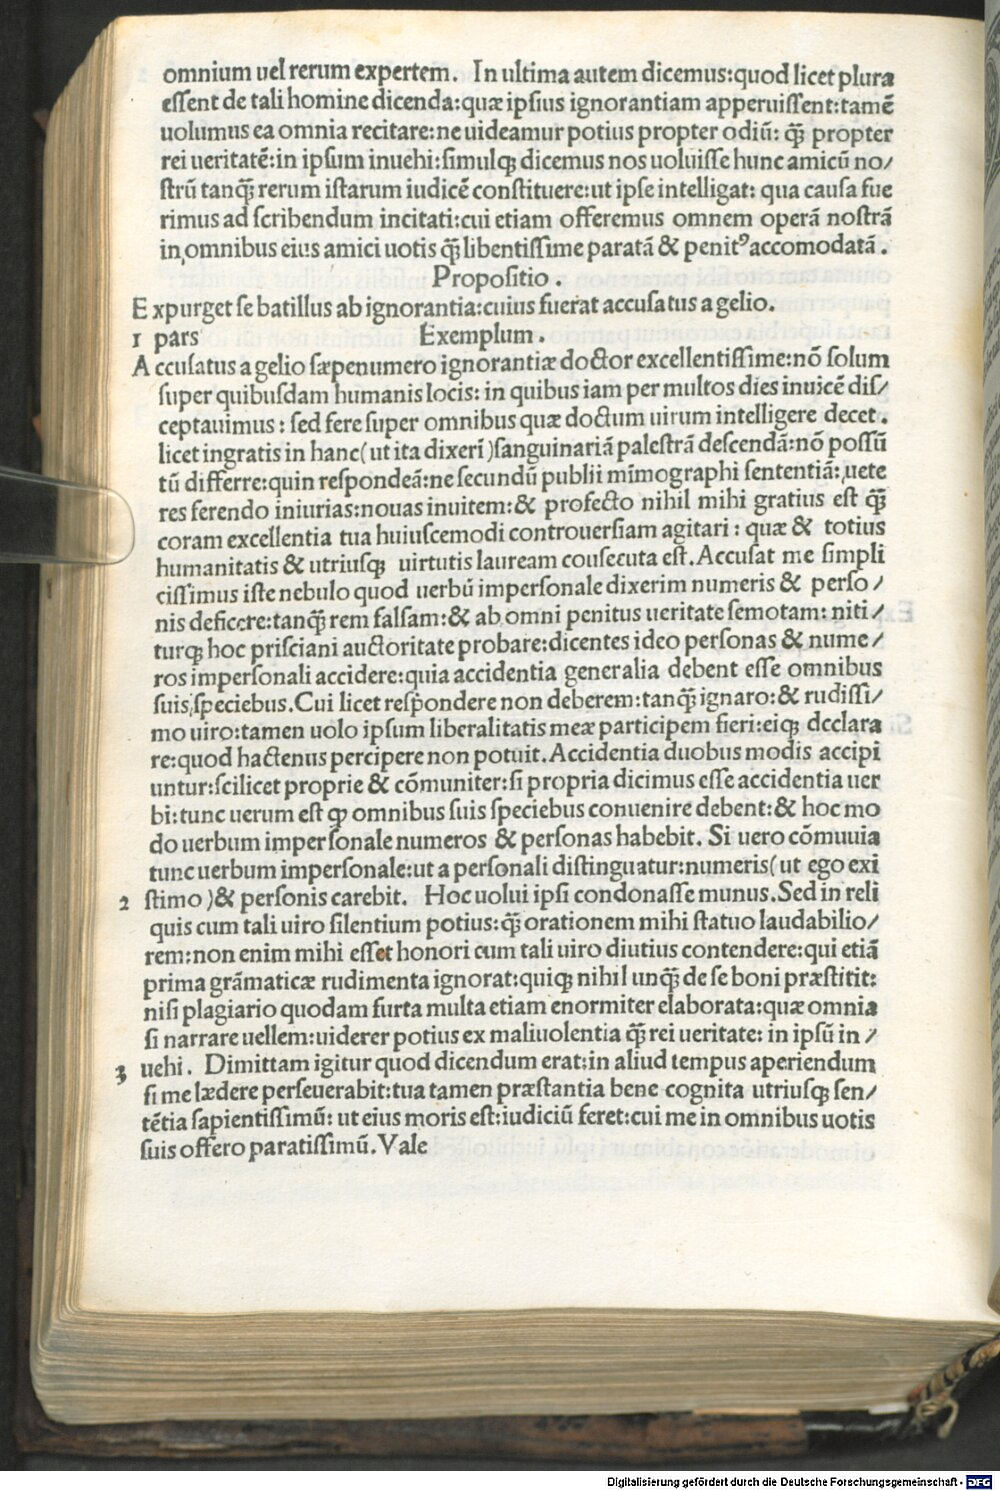 omnium uel rerum expertem. In ultima autem dicemus:quod licet plura
eſſent de tali homine dicenda:quæ ipſius ignorantiam apperuiſſent:tamē
uolumus ea omnia recitare:ne uideamur potius propter odiū: q̄ꝫ propter
rei ueritatē:in ipſum inuehi:ſimulqꝫ dicemus nos uoluiſſe hunc amicū no/
ſtrū tanq̄ꝫ rerum iſtarum iudicē conſtituere:ut ipſe intelligat: qua cauſa fue
rimus ad ſcribendum incitati:cui etiam offeremus omnem operā noſtrā
in omnibus eius amici uotis q̄ꝫ libentiſſime paratā & penitꝰ accomodatā.
Propoſitio.
Expurget ſe batillus ab ignorantia:cuius fuerat accuſatus a gelio.
1 pars Exemplum.
Accuſatus a gelio ſæpenumero ignorantiæ doctor excellentiſſime:nō ſolum
ſuper quibuſdam humanis locis: in quibus iam per multos dies inuicē diſ/
ceptauimus: ſed fere ſuper omnibus quæ doctum uirum intelligere decet.
licet ingratis in hanc(ut ita dixerī)ſanguinariā paleſtrā deſcendā:nō poſſū
tū differre:quin reſpondeā:ne ſecundū publii mīmographi ſententiā: uete
res ferendo iniurias:nouas inuitem:& profecto nihil mihi gratius eſt q̄ꝫ
coram excellentia tua huiuſcemodi controuerſiam agitari: quæ & totius
humanitatis & utriuſqꝫ uirtutis lauream couſecuta eſt. Accuſat me ſimpli
ciſſimus iſte nebulo quod uerbū imperſonale dixerim numeris & perſo/
nis deficere:tanq̄ꝫ rem falſam:& ab omni penitus ueritate ſemotam: niti/
turqꝫ hoc priſciani auctoritate probare:dicentes ideo perſonas & nume/
ros imperſonali accidere:quia accidentia generalia debent eſſe omnibus
ſuis ſpeciebus. Cui licet reſpondere non deberem:tanq̄ꝫ ignaro:& rudiſſi/
mo uiro:tamen uolo ipſum liberalitatis meæ participem fieri:eiqꝫ declara
re:quod hactenus percipere non potuit. Accidentia duobus modis accipi
untur:ſcilicet proprie & cōmuniter:ſi propria dicimus eſſe accidentia uer
bi:tunc uerum eſt ꝙ omnibus ſuis ſpeciebus conuenire debent:& hoc mo
do uerbum imperſonale numeros & perſonas habebit. Si uero cōmuuia
tunc uerbum imperſonale:ut a perſonali diſtinguatur:numeris(ut ego exi
2 ſtimo)& perſonis carebit. Hoc uolui ipſi condonaſſe munus. Sed in reli
quis cum tali uiro ſilentium potius:q̄ꝫ orationem mihi ſtatuo laudabilio/
rem:non enim mihi eſſet honori cum tali uiro diutius contendere:qui etiā
prima grāmaticæ rudimenta ignorat:quiqꝫ nihil unq̄ꝫ de ſe boni præſtitit:
niſi plagiario quodam furta multa etiam enormiter elaborata:quæ omnia
ſi narrare uellem:uiderer potius ex maliuolentia q̄ꝫ rei ueritate: in ipſū in/
3 uehi. Dimittam igitur quod dicendum erat:in aliud tempus aperiendum
ſi me lædere perſeuerabit:tua tamen præſtantia bene cognita utriuſqꝫ ſen/
tētia ſapientiſſimū: ut eius moris eſt:iudiciū feret:cui me in omnibus uotis
ſuis offero paratiſſimū. Vale
Digitalisierung gefördert durch die Deutsche Forschungsgemeinschaft - DFG